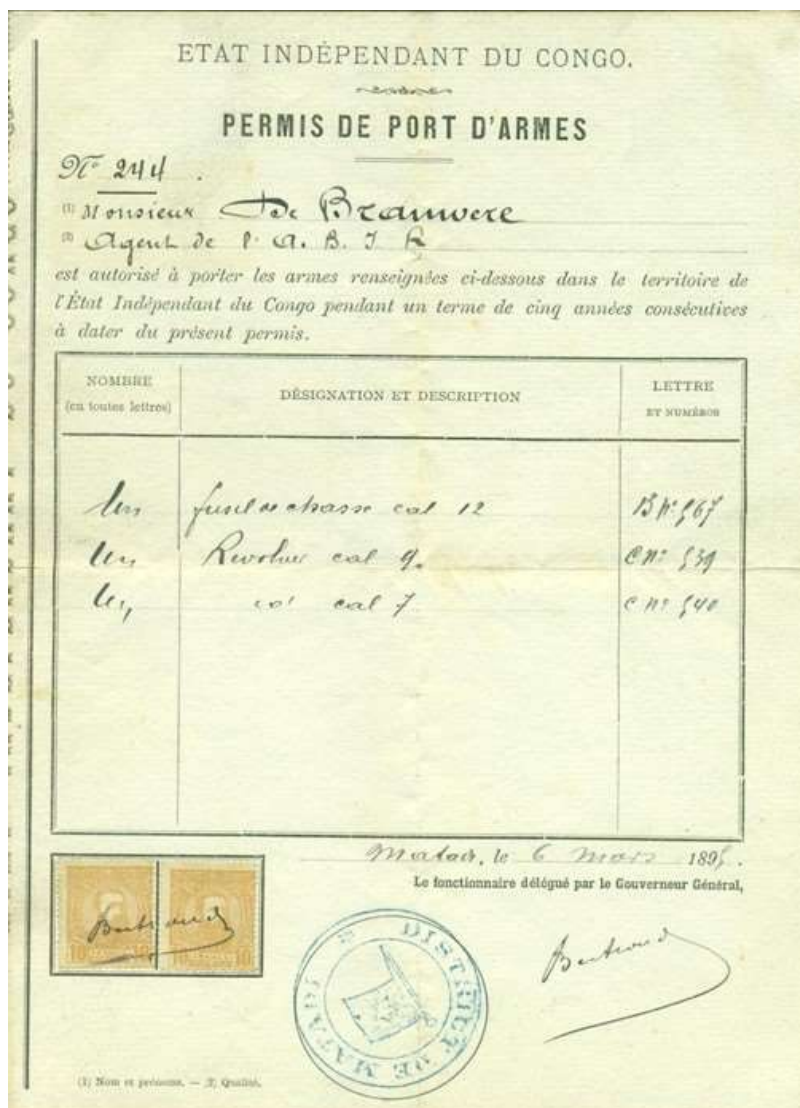 ETAT INDÉPENDANT DU CONGO.
PERMIS DE PORT D'ARMES
Nº 244.
(1) Monsieur De Brauwere
(2) Agent de l'A. B. I R
est autorisé à porter les armes renseignées ci-dessous dans le territoire de
l'État Indépendant du Congo pendant un terme de cinq années consécutives
à dater du présent permis.
NOMBRE
(en toutes lettres)
DÉSIGNATION ET DESCRIPTION
LETTRE
ET NUMÉROS
Un fusil de chasse cal 12 B Nº 567
Un Revolver cal 9. C Nº 539
Un cal 7 C Nº 540
Matadi, le 6 mars 1895.
Le fonctionnaire délégué par le Gouverneur Général,
10 10
Bertrand
10 10
Bertrand
DISTRICT DE MATADI
(1) Nom et prénoms. — (2) Qualité.